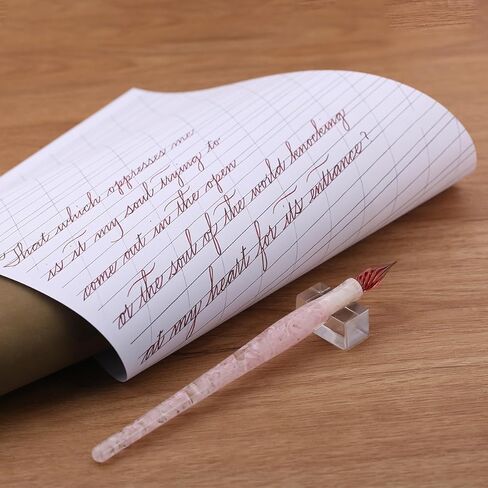 That which oppresses me
is it my soul trying to
come out in the open
or the soul of the world knocking
at my heart for its entrance?